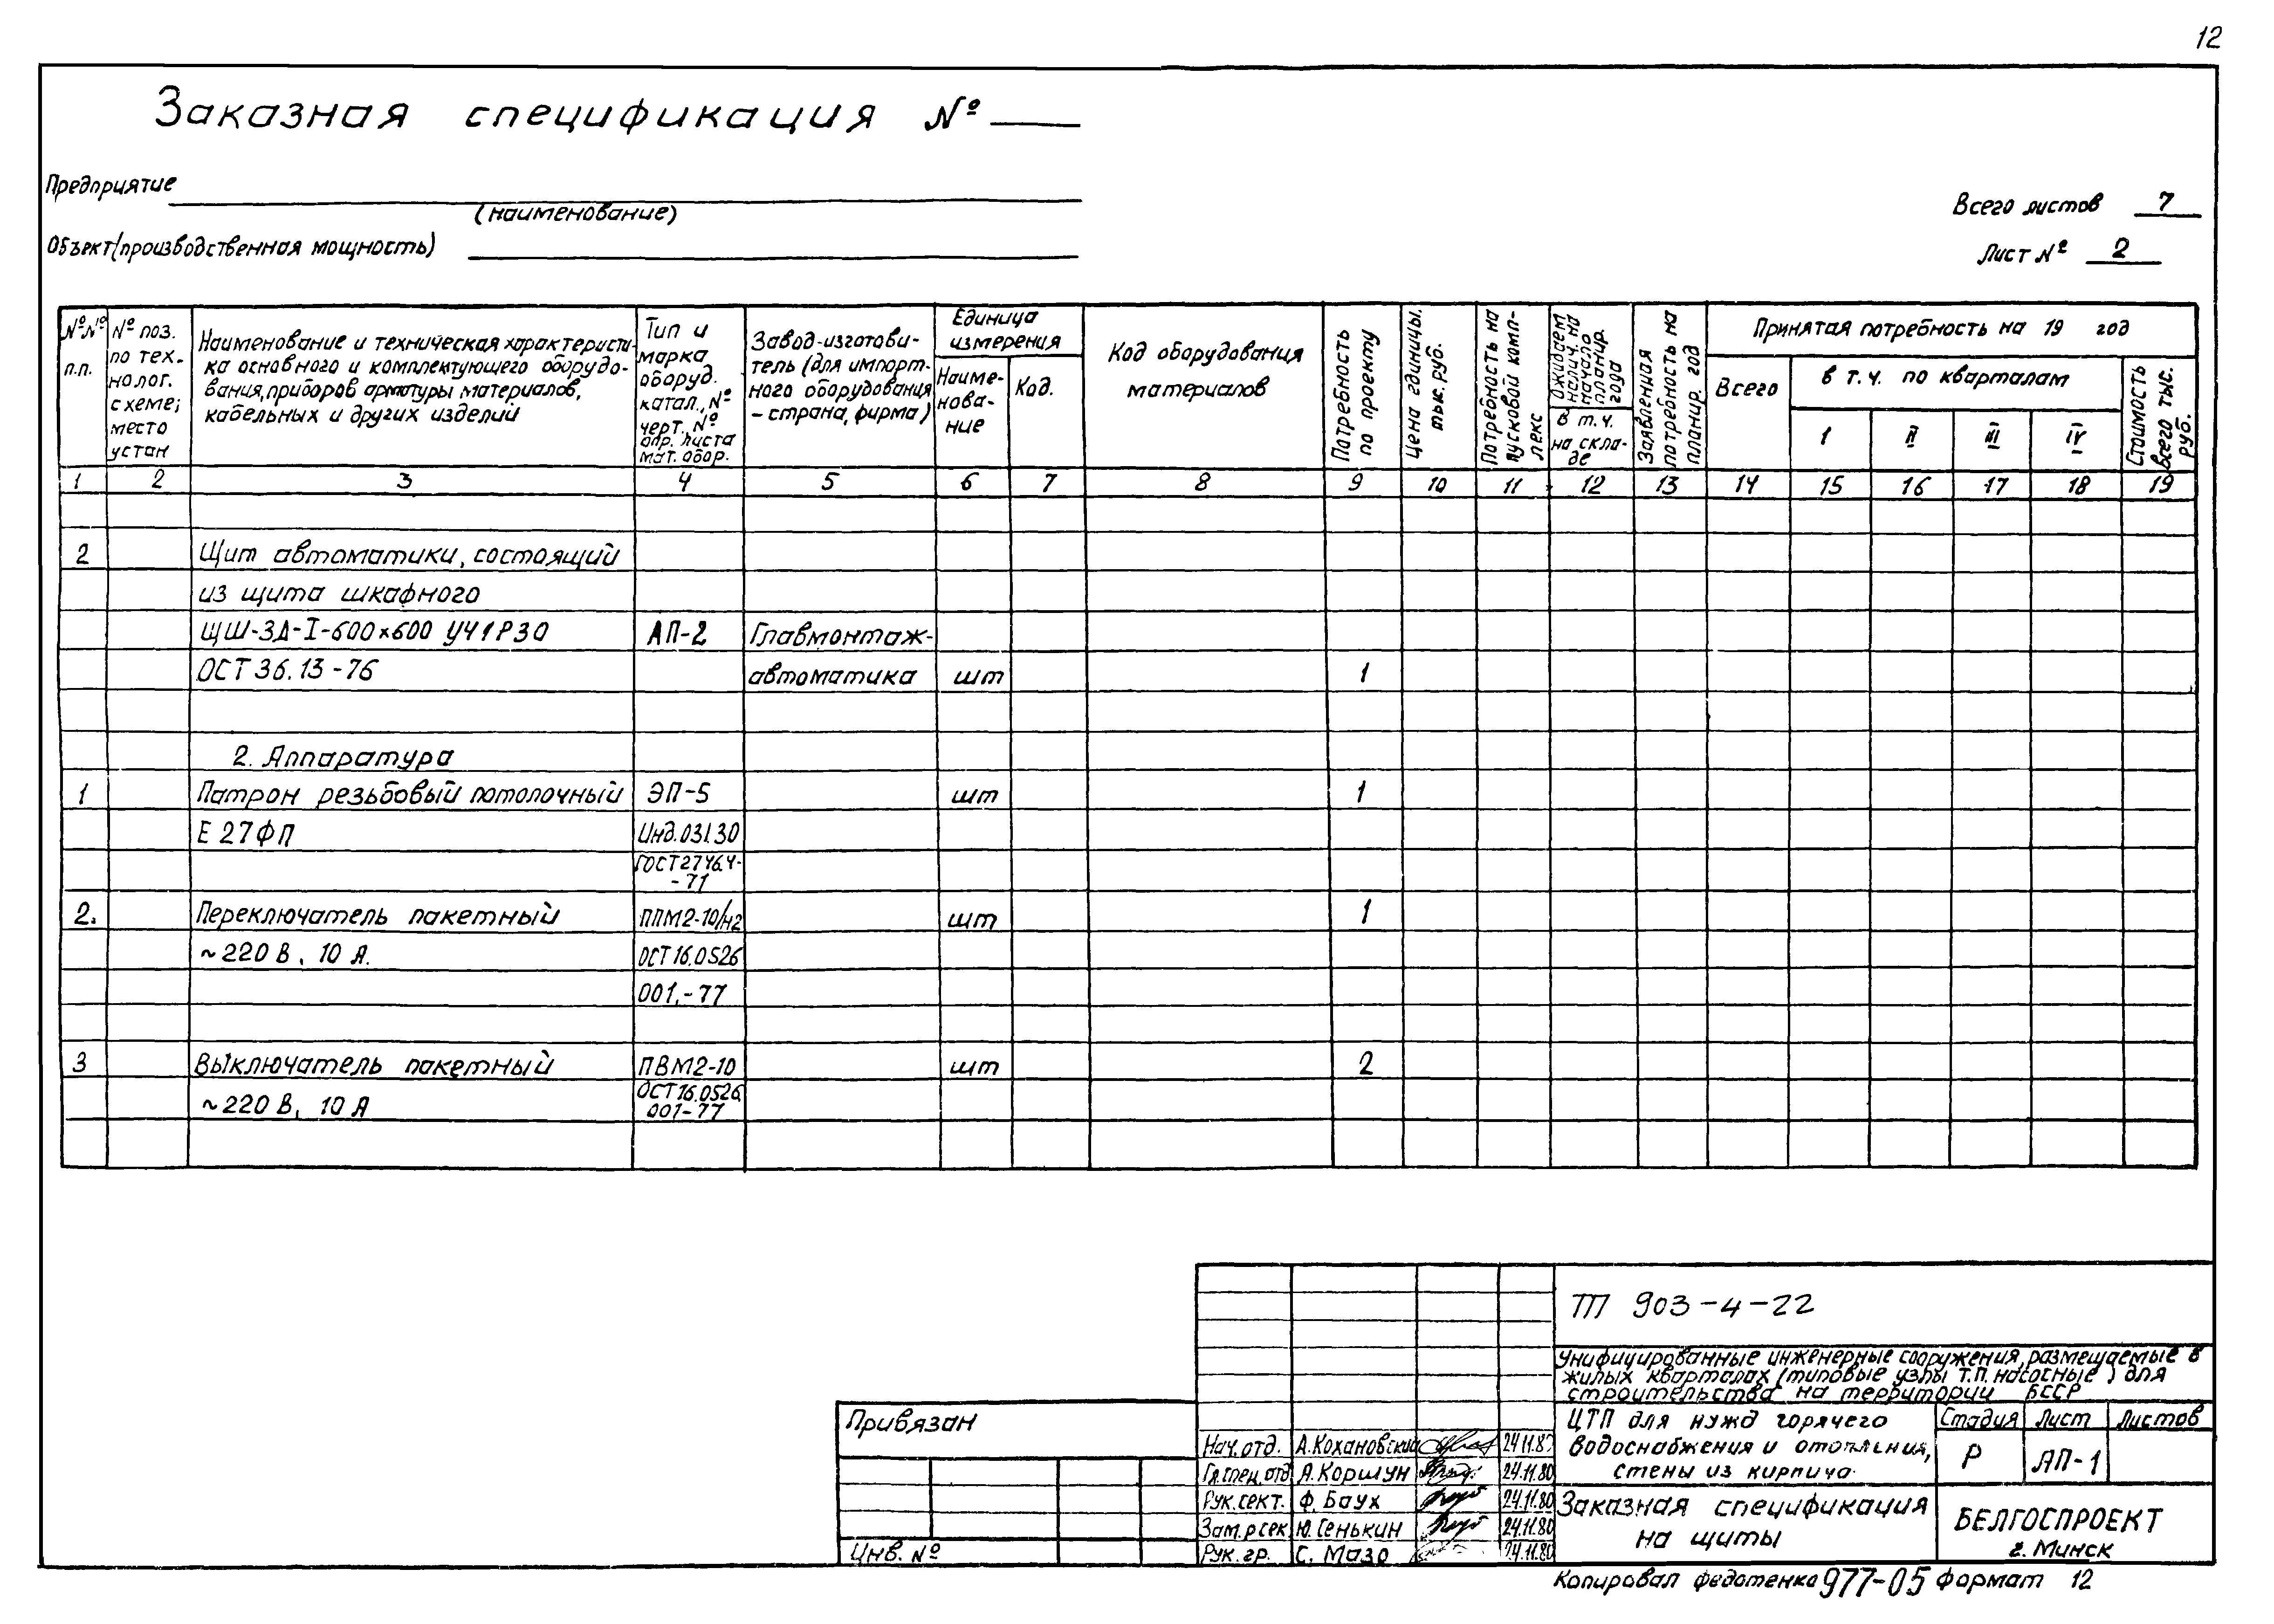 12
Заказная спецификация №
Предприятие
(наименование)
Всего листов 7
Объект(производственная мощность)
Лист № 2
№№ п.п.
№ поз. по тех-нолог. схеме; место устан
Наименование и техническая характеристи-
ка основного и комплектующего оборудо-
вания, приборов арматуры материалов,
кабельных и других изделий
Тип и
марка
оборуд.
катал., №
черт. №
опр. листа
мат. обор.
Завод-изготови-
тель (для импорт-
ного оборудования
- страна, фирма)
Единица
измерения
Наиме-
нова-
ние
Код.
Код оборудования
материалов
Потребность
по проекту
Цена единицы.
тыс. руб.
Потребность на
пусковой комп-
лекс
Ожидаем
налич. на
начало
планир.
года
в т.ч.
на скла-
де
Заявленная
потребность на
планир. год
Принятая потребность на 19 год
Всего
в т.ч. по кварталам
I II III IV
Стоимость
всего тыс.
руб.
1 2 3 4 5 6 7 8 9 10 11 12 13 14 15 16 17 18 19
2 Щит автоматики, состоящий
из щита шкафного
ЩШ-3Д-I-600×600 УЧ1Р30 АП-2 Главмонтаж-
ОСТ 36.13-76 автоматика шт 1
2. Аппаратура
1 Патрон резьбовый потолочный ЭП-5 шт 1
Е 27ФП Инд.031.30
ГОСТ2746.4-
-71
2. Переключатель пакетный ППМ2-10/н2 шт 1
~220 В, 10 А. ОСТ 16.0526
001.-77
3 Выключатель пакетный ПВМ2-10 шт 2
~220 В, 10 А ОСТ 16.0526
001-77
ТП 903-4-22
Унифицированные инженерные сооружения, размещаемые в
жилых кварталах (типовые узлы т.п. насосные) для
строительства на территории БССР
Привязан
Инв. №
Нач. отд. А.Кохановский 24.11.80
Гл.спец.отд А.Коршун 24.11.80
Рук.сект. Ф. Баух 24.11.80
Зам.р сек. Ю. Генькин 24.11.80
Рук. гр. С. Мазо 24.11.80
ЦТП для нужд горячего
водоснабжения и отопления,
стены из кирпича.
Стадия Лист Листов
Р АП-1
Заказная спецификация
на щиты
БЕЛГОСПРОЕКТ
г. Минск
Копировал Федотенко 977-05 Формат 12